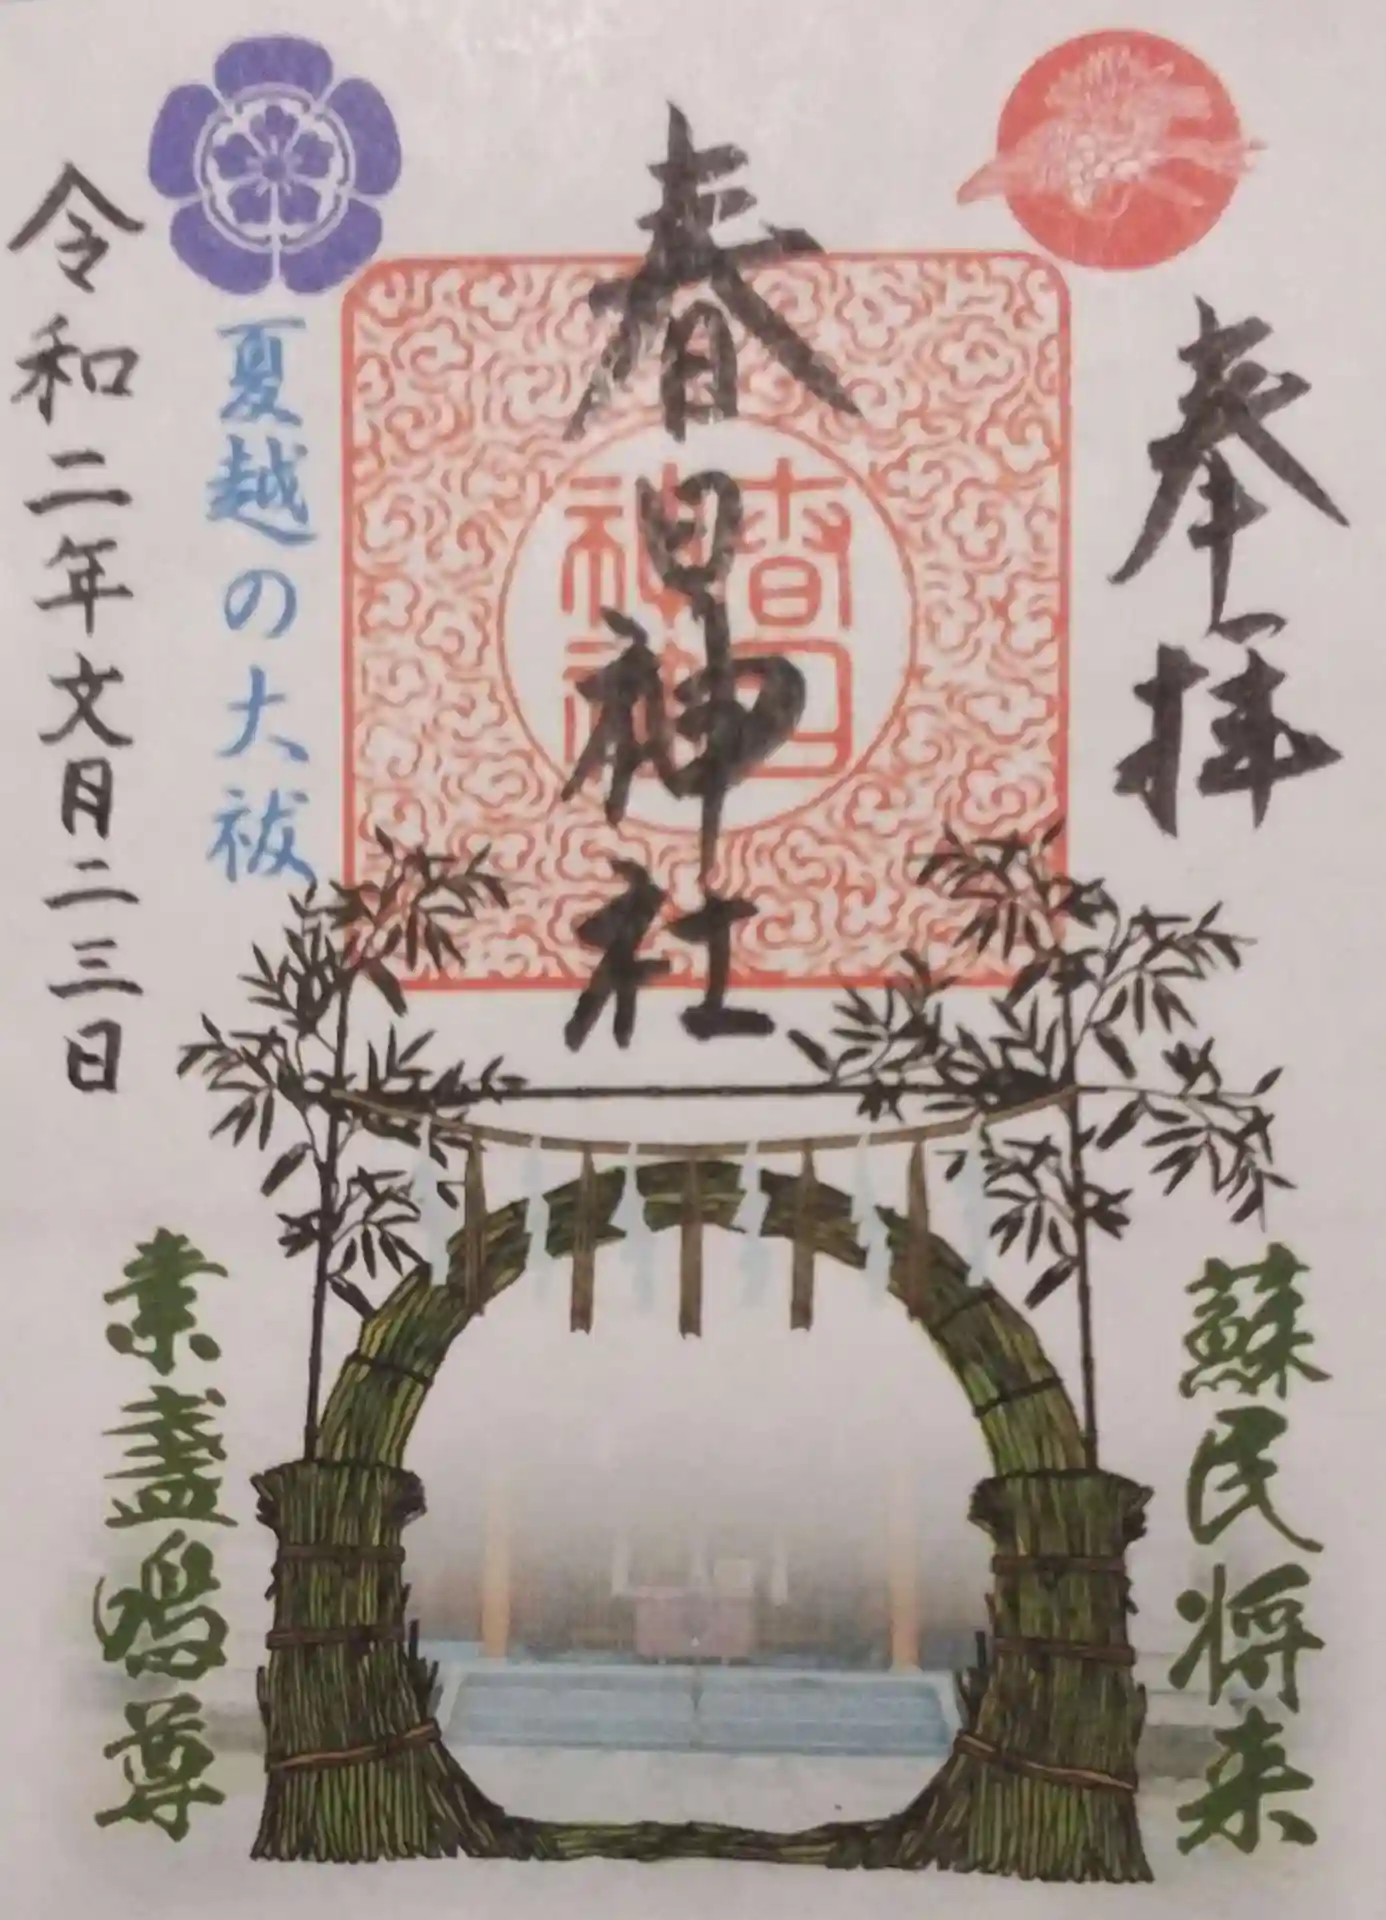 奉拝
蘇民将来
春日神社
春日
神社
夏越の大祓
素盞嗚尊
令和二年文月二三日